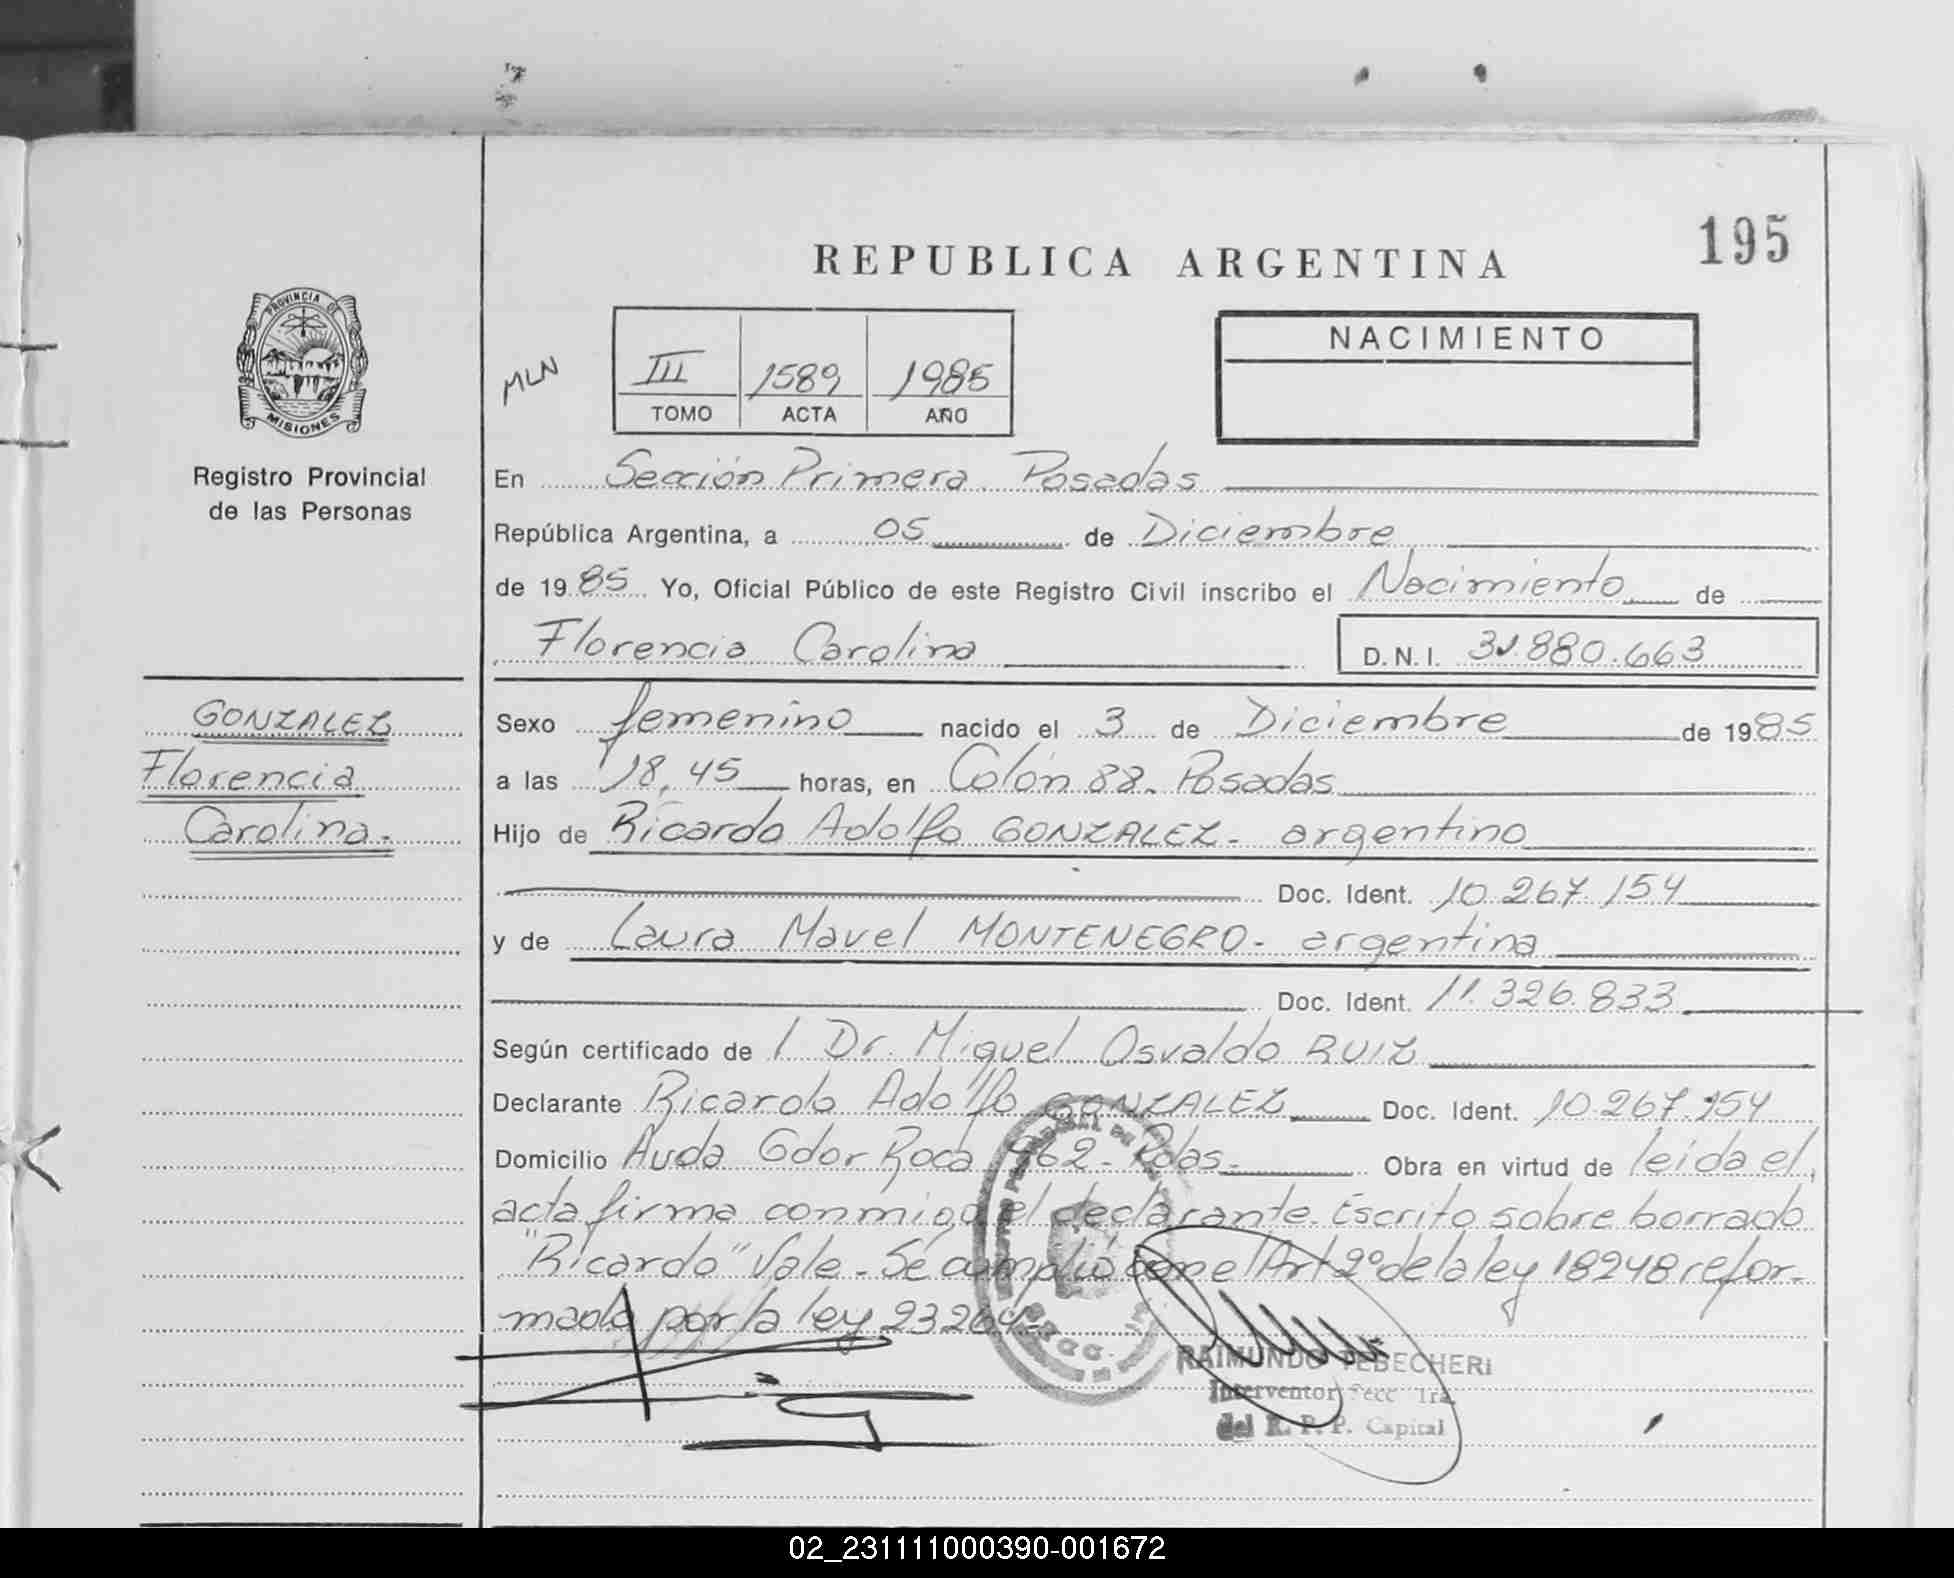 195
REPUBLICA ARGENTINA
PROVINCIA DE
MISIONES
Registro Provincial
de las Personas
MLN
III 1589 1985
TOMO ACTA AÑO
NACIMIENTO
En Sección Primera Posadas
República Argentina, a 05 de Diciembre
de 1985 Yo, Oficial Público de este Registro Civil inscribo el Nacimiento de
Florencia Carolina D.N.I. 31.880.663
GONZALEZ
Florencia
Carolina.-
Sexo femenino nacido el 3 de Diciembre de 1985
a las 18,45 horas, en Colón 88. Posadas
Hijo de Ricardo Adolfo GONZALEZ- argentino
Doc. Ident. 10.267.154
y de Laura Mavel MONTENEGRO- argentina
Doc. Ident. 11.326.833
Según certificado de / Dr. Miguel Osvaldo RUIZ
Declarante Ricardo Adolfo GONZALEZ Doc. Ident. 10.267.154
Domicilio Avda Gdor Roca 962- Pdas- Obra en virtud de leida el
acta firma conmigo el declarante. Escrito sobre borrado
"Ricardo" Vale- Se cumplió con el Art 2º de la ley 18248 refor-
mado por la ley 23264-
RAIMUNDO TEBECHERI
Interventor Secc 1ra.
del R. P. P. Capital
02_231111000390-001672